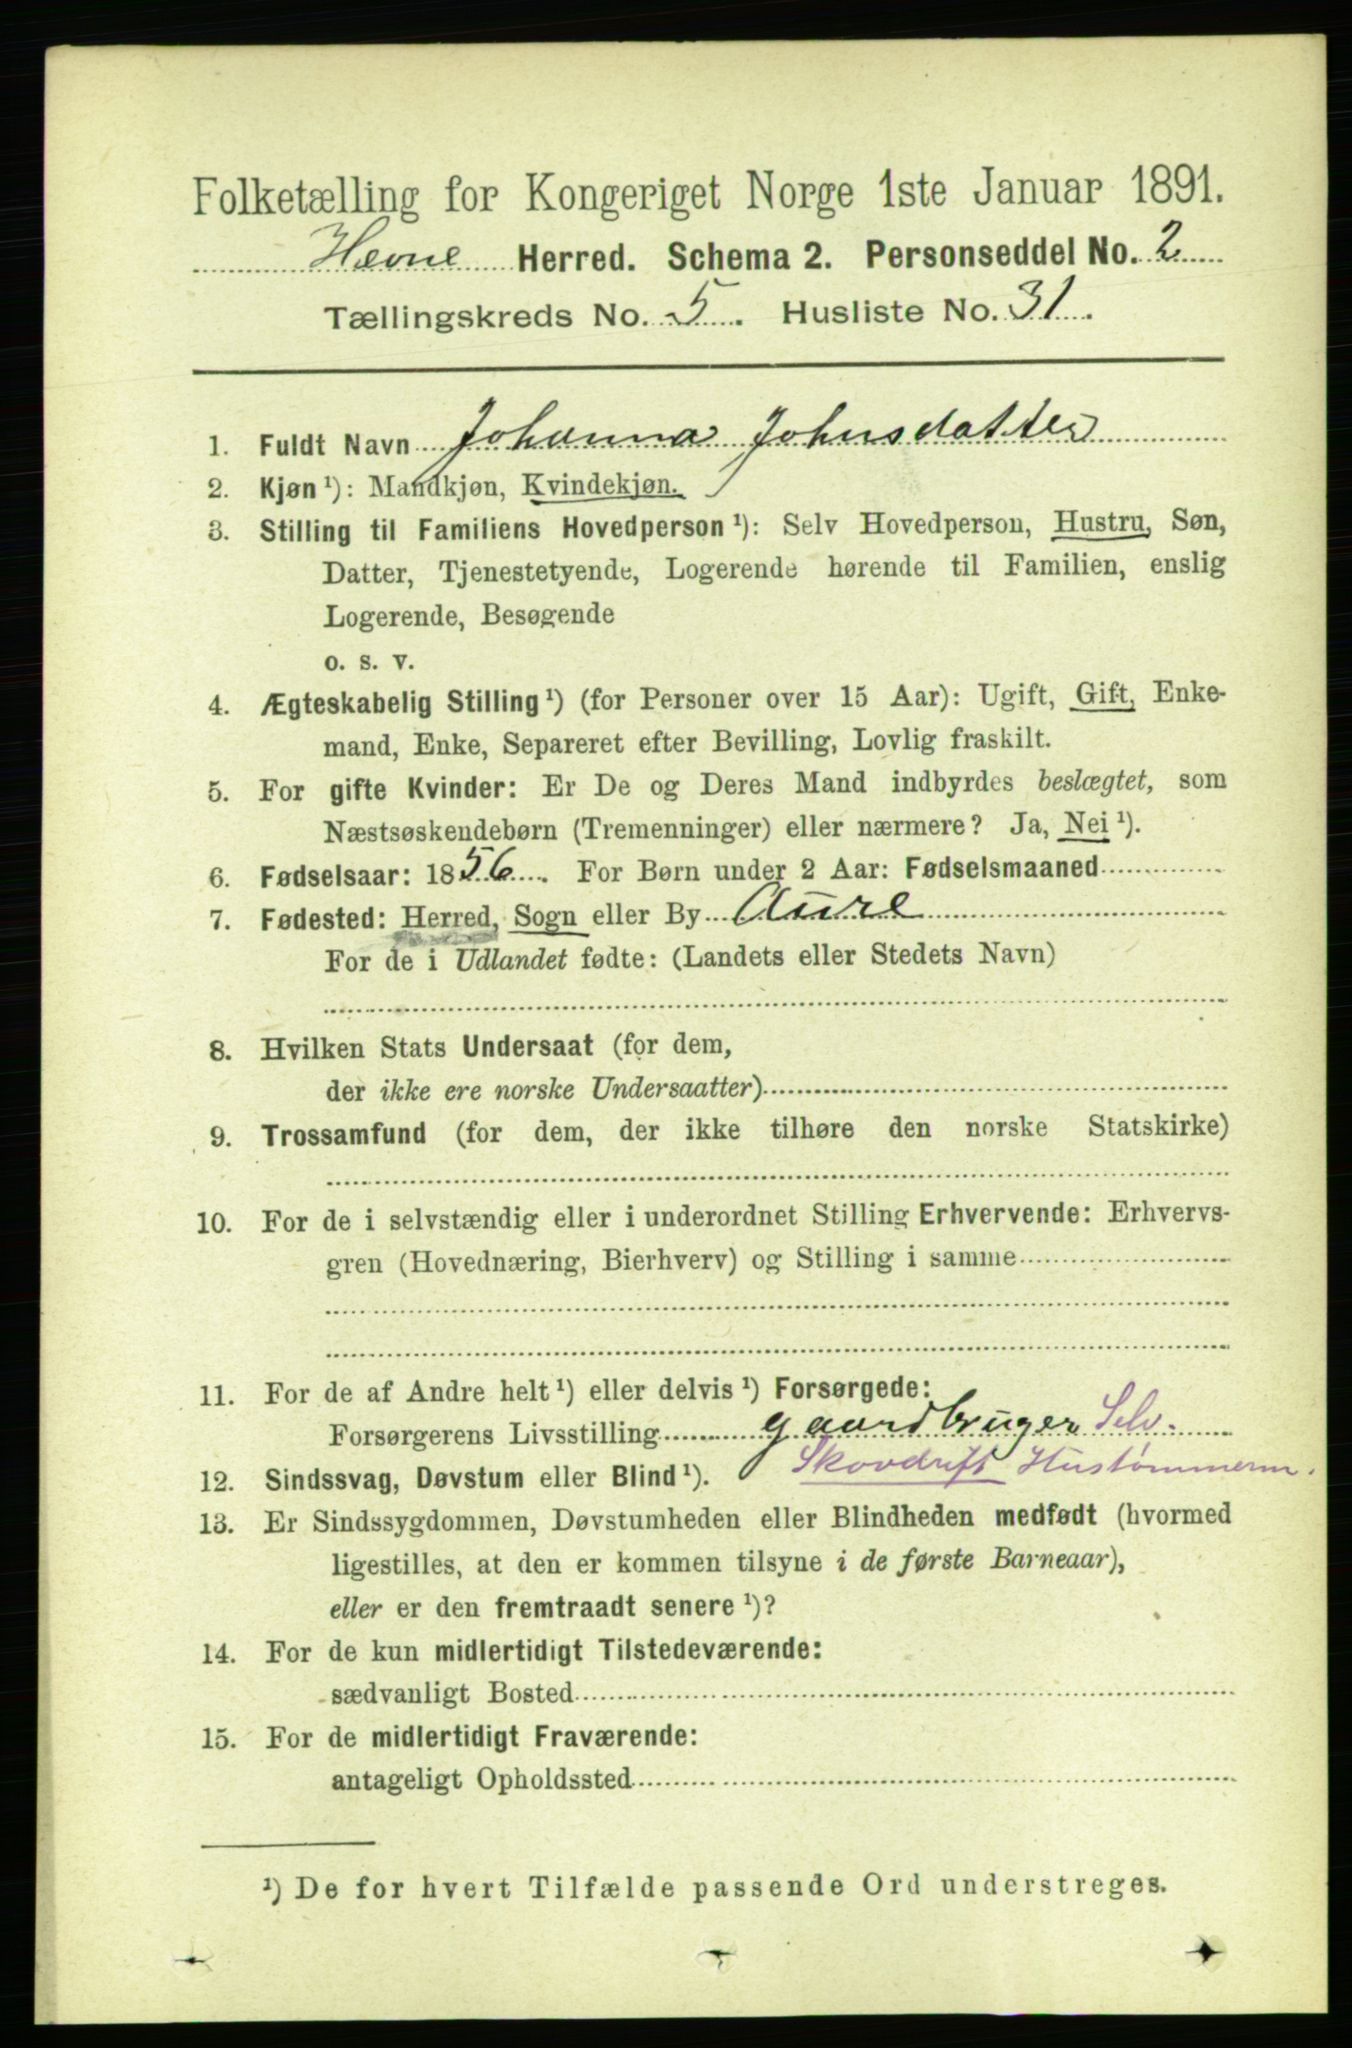 Folketælling for Kongeriget Norge 1ste Januar 1891.
Hevne Herred. Schema 2. Personseddel No. 2
Tællingskreds No. 5. Husliste No. 31.
1. Fuldt Navn Johanna Johnsdatter
2. Kjøn ¹): Mandkjøn, Kvindekjøn.
3. Stilling til Familiens Hovedperson ¹): Selv Hovedperson, Hustru, Søn,
Datter, Tjenestetyende, Logerende hørende til Familien, enslig
Logerende, Besøgende
o. s. v.
4. Ægteskabelig Stilling ¹) (for Personer over 15 Aar): Ugift, Gift, Enke-
mand, Enke, Separeret efter Bevilling, Lovlig fraskilt.
5. For gifte Kvinder: Er De og Deres Mand indbyrdes beslægtet, som
Næstsøskendebørn (Tremenninger) eller nærmere? Ja, Nei ¹).
6. Fødselsaar: 1856. For Børn under 2 Aar: Fødselsmaaned
7. Fødested: Herred, Sogn eller By Aure
For de i Udlandet fødte: (Landets eller Stedets Navn)
8. Hvilken Stats Undersaat (for dem,
der ikke ere norske Undersaatter)
9. Trossamfund (for dem, der ikke tilhøre den norske Statskirke)
10. For de i selvstændig eller i underordnet Stilling Erhvervende: Erhvervs-
gren (Hovednæring, Bierhverv) og Stilling i samme
11. For de af Andre helt ¹) eller delvis ¹) Forsørgede:
Forsørgerens Livsstilling gaardbruger Selv.
Skovdrift Hustømmerm.
12. Sindssvag, Døvstum eller Blind ¹).
13. Er Sindssygdommen, Døvstumheden eller Blindheden medfødt (hvormed
ligestilles, at den er kommen tilsyne i de første Barneaar),
eller er den fremtraadt senere ¹)?
14. For de kun midlertidigt Tilstedeværende:
sædvanligt Bosted
15. For de midlertidigt Fraværende:
antageligt Opholdssted
¹) De for hvert Tilfælde passende Ord understreges.